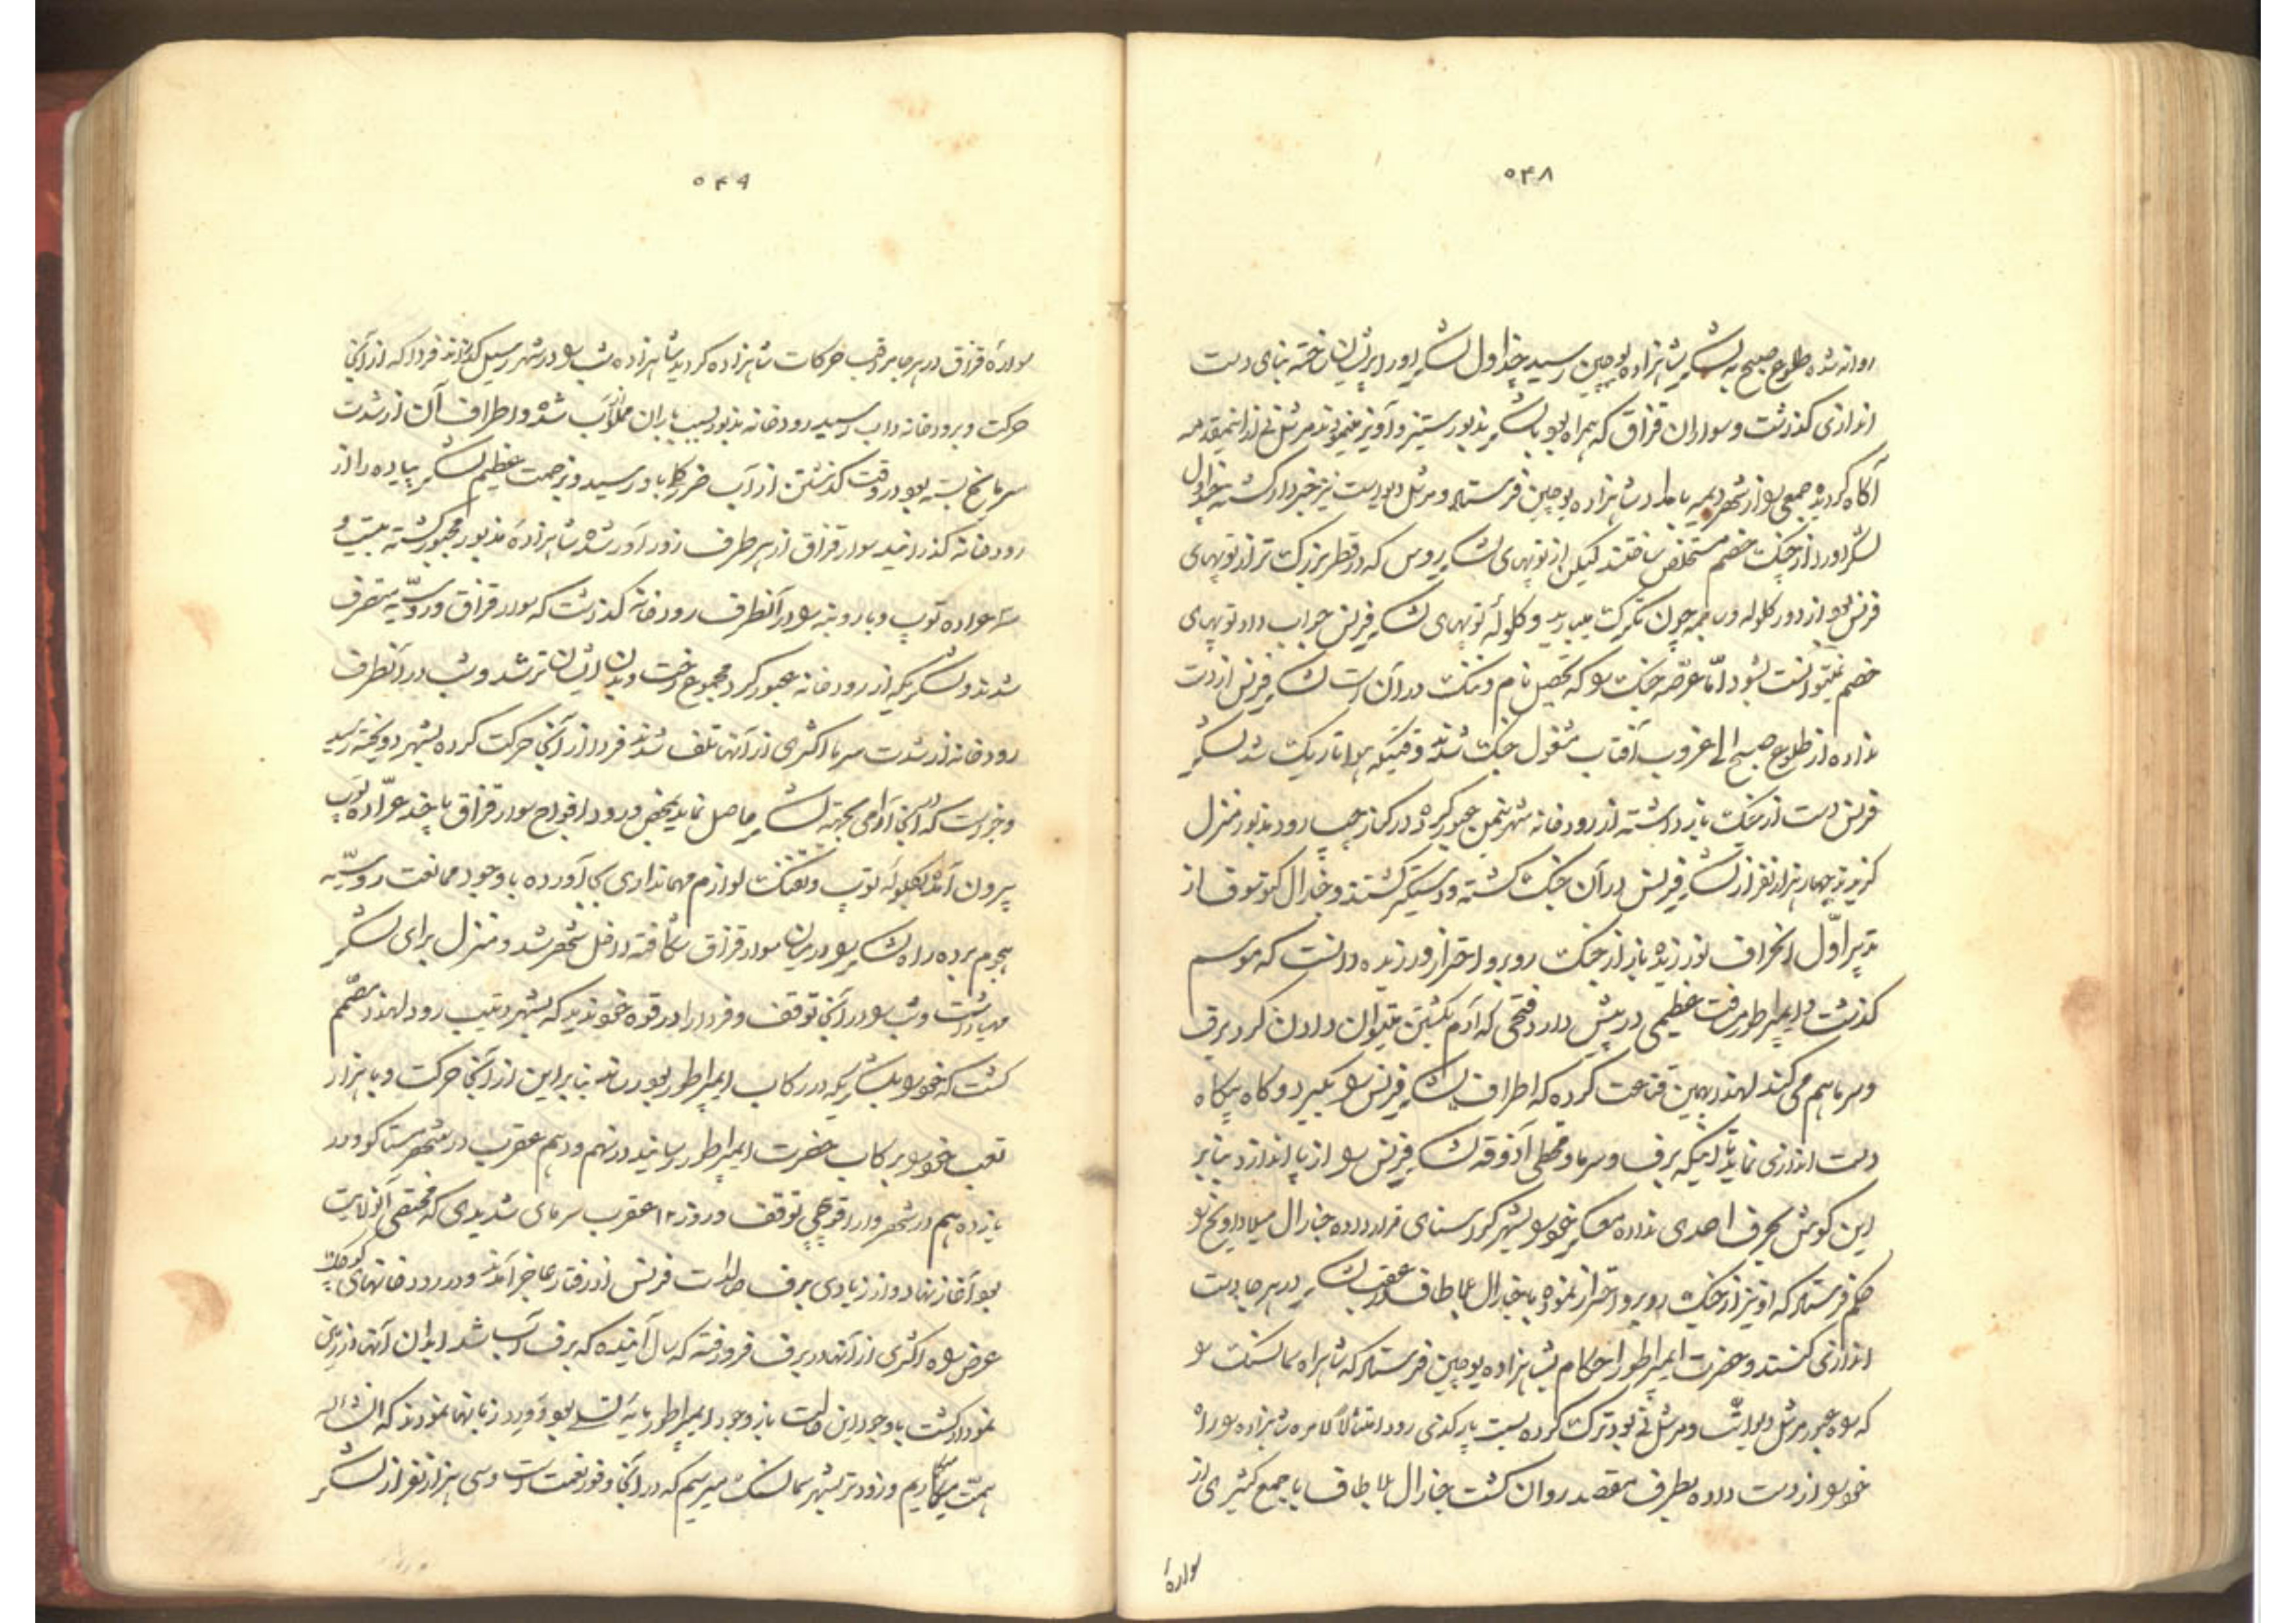 ۵۴۸
روانه شده طلوع صبح به لشکر شاهزاده یوجین رسید چنداول لشکر اورا پریشان ساخته بنای دست
اندازی گذاشت و سواران قزاق که همراه بود با لشکر مذبور ستیز و آویز مینمودند مرشل نی از اینمقدمه
آگاه گردیده جمعی را از شهر دیمیه بامداد شاهزاده یوجین فرستاد و مرشل دیورست نیز خبردار گشته چنداول
لشکر اورا از جنگ خصم مستخلص ساختند لیکن از توپهای لشکر روس که در قطر بزرگ تر از توپهای
فرنس بود از دور گلوله و ساچمه چون تگرگ میبارید و گلولهٔ توپهای لشکر فرنس جواب داد توپهای
خصم نمیتوانست بشود امّا عرّصه جنگ را که تحصیل نام و ننگ در آن است لشکر فرنس از دست
نداده از طلوع صبح الی غروب آفتاب مشغول جنگ شدند وقتیکه هوا تاریک شد لشکر
فرنس دست از جنگ باز داشته از رودخانه شهر عبور کرده در کنار چپ رود مذبور منزل
گزیدند چهار هزار نفر از لشکر فرنس در آن جنگ کشته و دستگیر گشتند و جنارال کوتوسوف از
تدبیر اوّل انحراف نورزیده باز از جنگ روبرو احتراز ورزیده دانست که موسم
گذشت و ایمپراطور مسافت عظیمی در پیش دارد فتحی که آدم بکشتن میتوان دادن کرد برف
و سرما هم می کند لهذا بهمین قناعت کرده که اطراف لشکر فرنس را بگیرد و گاه بیگاه
دست اندازی نماید تا اینکه برف و سرما و قحطی آذوقه لشکر فرنس را از پا اندازد بنابر
این گوش بحرف احدی نداده معسکر خود را بشهر کراسنای قرار داده جنارال میلادویچ را
حکم فرستاد که او نیز از جنگ روبرو احتراز نموده با جنارال پلاطاف در عقب لشکر در هر جا دست
اندازی کنند و حضرت ایمپراطور احکام بشاهزاده یوجین فرستاد که شاهراه سمالنسک را
که راه عبور مرشل دیورست و مرشل نی بود ترک کرده بسمت پارکدنی رود امتثالاً لامره شاهزاده راه
خود را از دست داده بطرف مقصد روان گشت جنارال پلاطاف با جمع کثیری از
سوارهٔ
۵۴۹
سوارهٔ قزاق در هر جا مراقب حرکات شاهزاده گردید شاهزاده شب را در شهر رسیل گذرانده فردا که از آنجا
حرکت و برودخانه داب رسید رودخانه مذبور بسبب باران مملو از آب شده و اطراف آن از شدت
سرما یخ بسته بود در وقت گذشتن از آب ضرر کلی باو رسید و بزحمت عظیم لشکر پیاده را از
رودخانه گذرانید سوار قزاق از هر طرف زور آور شده شاهزادهٔ مذبور مجبور گشته بیست و
سه عراده توپ و بار و بنه را در آنطرف رودخانه گذاشت که سوار قزاق و روسیّه متصرف
شدند و لشکریکه از رودخانه عبور کرد مجموع رخت و بدن ایشان تر شد و شب در آنطرف
رودخانه از شدت سرما اکثری از آنها تلف شدند فردا از آنجا حرکت کرده بشهر دوبخته رسید
و خواست که در آنجا آرامی بجهته لشکر حاصل نماید بمحض ورود افواج سوار قزاق با چند عرّاده توپ
بیرون آمده بگلوله توپ و تفنگ لوازم مهمانداری بجا آورده با وجود ممانعت روسیّه
هجوم برده راه لشکر را در میان سوار قزاق شکافته داخل شهر شد و منزل برای لشکر
مهیا داشت و شب را در آنجا توقف و فردا را در قوه خود ندید که بشهر ویتیب رود لهذا مصمّم
گشت که خود را بلشکریکه در رکاب ایمپراطور بود رساند بنابراین از آنجا حرکت و با هزار
تعب خود را برکاب حضرت ایمپراطور رسانید در نهم و دهم عقرب در شهر ستاکو ورد
یازدهم در شهر وارد توقف و روز ۱۲ عقرب سرمای شدیدی که مقتضی آنولایت
بود آغاز نهاد و از زیادی برف صالدات فرنس از رفتار عاجز آمدند و در رودخانهای کوچک
عرض راه اکثری از آنها در برف فرو رفته که سال آینده که برف آب شد ابدان آنها از زمین
نمودار گشت با وجود این حالت باز وجود ایمپراطور مایه تسلی بود و ورد زبانها نمودند که انشاءالله
همّت میگماریم و زودتر بشهر سمالنسک میرسیم که در آنجا وفور نعمت است و سی هزار نفر از لشکر